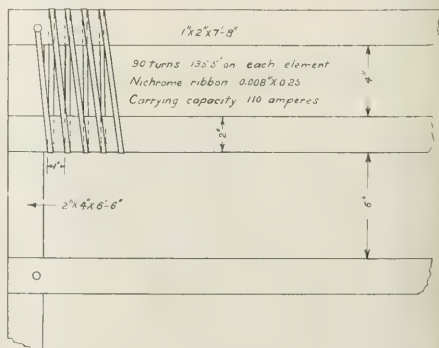 1"X2"X7'-8"
90 turns 135'5" on each element
Nichrome ribbon 0.008"X0.25
Carrying capacity 110 amperes
4"
2"
1"
2"X4"X6'-6"
6"